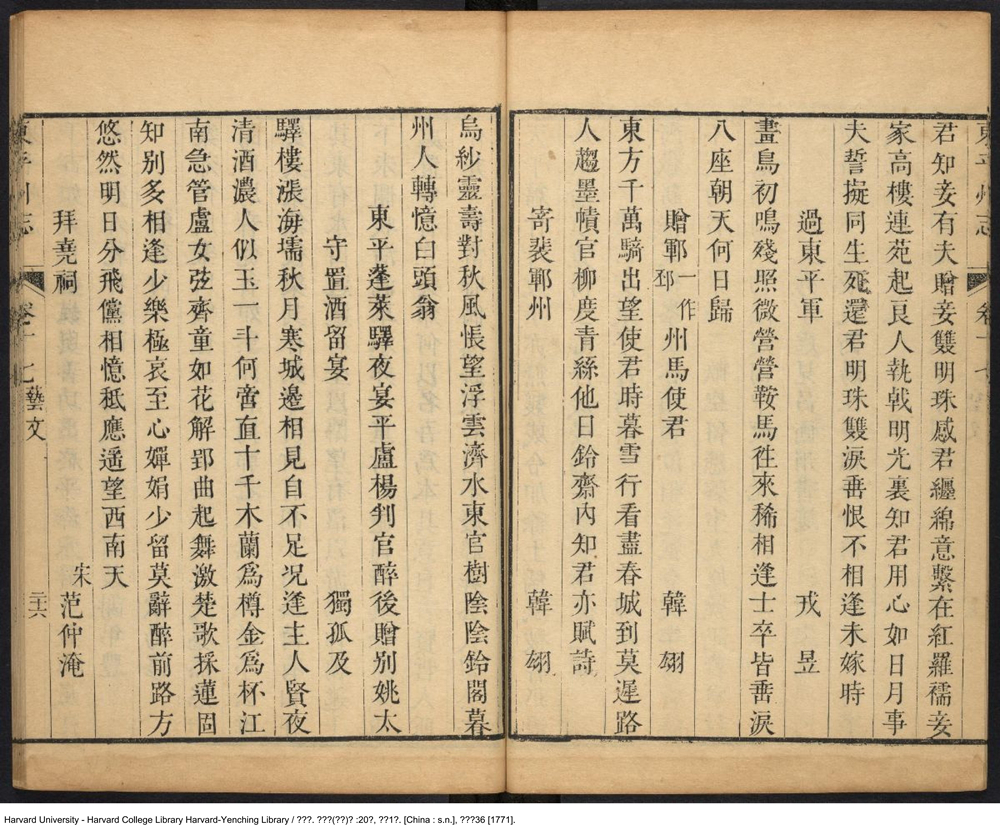 君知妾有夫贈妾雙明珠感君纏綿意繫在紅羅襦妾
家高樓連苑起良人執戟明光裏知君用心如日月事
夫誓擬同生死還君明珠雙淚垂恨不相逢未嫁時
過東平軍 戎昱
畫鳥初鳴殘照微營營鞍馬徃來稀相逢士卒皆垂淚
八座朝天何日歸
贈鄆一作邳州馬使君 韓翃
東方千萬騎出望使君時暮雪行看盡春城到莫遲路
人趨墨幘官柳度青絲他日鈴齋內知君亦賦詩
寄裴鄆州 韓翃
烏紗靈壽對秋風悵望浮雲濟水東官樹陰陰鈴閣暮
州人轉憶白頭翁
東平蓬萊驛夜宴平盧楊判官醉後贈別姚太
守置酒留宴 獨孤及
驛樓漲海壖秋月寒城邊相見自不足况逢主人賢夜
清酒濃人似玉一斗何啻直十千木蘭為樽金為杯江
南急管盧女弦齊童如花解郢曲起舞激楚歌採蓮固
知別多相逢少樂極哀至心嬋娟少留莫辭醉前路方
悠然明日分飛儻相憶秪應遥望西南天
拜堯祠 宋范仲淹
東平州志 卷十七 藝文 二十六
Harvard University - Harvard College Library Harvard-Yenching Library / ???. ???(??)? :20?, ??1?. [China : s.n.], ???36 [1771].